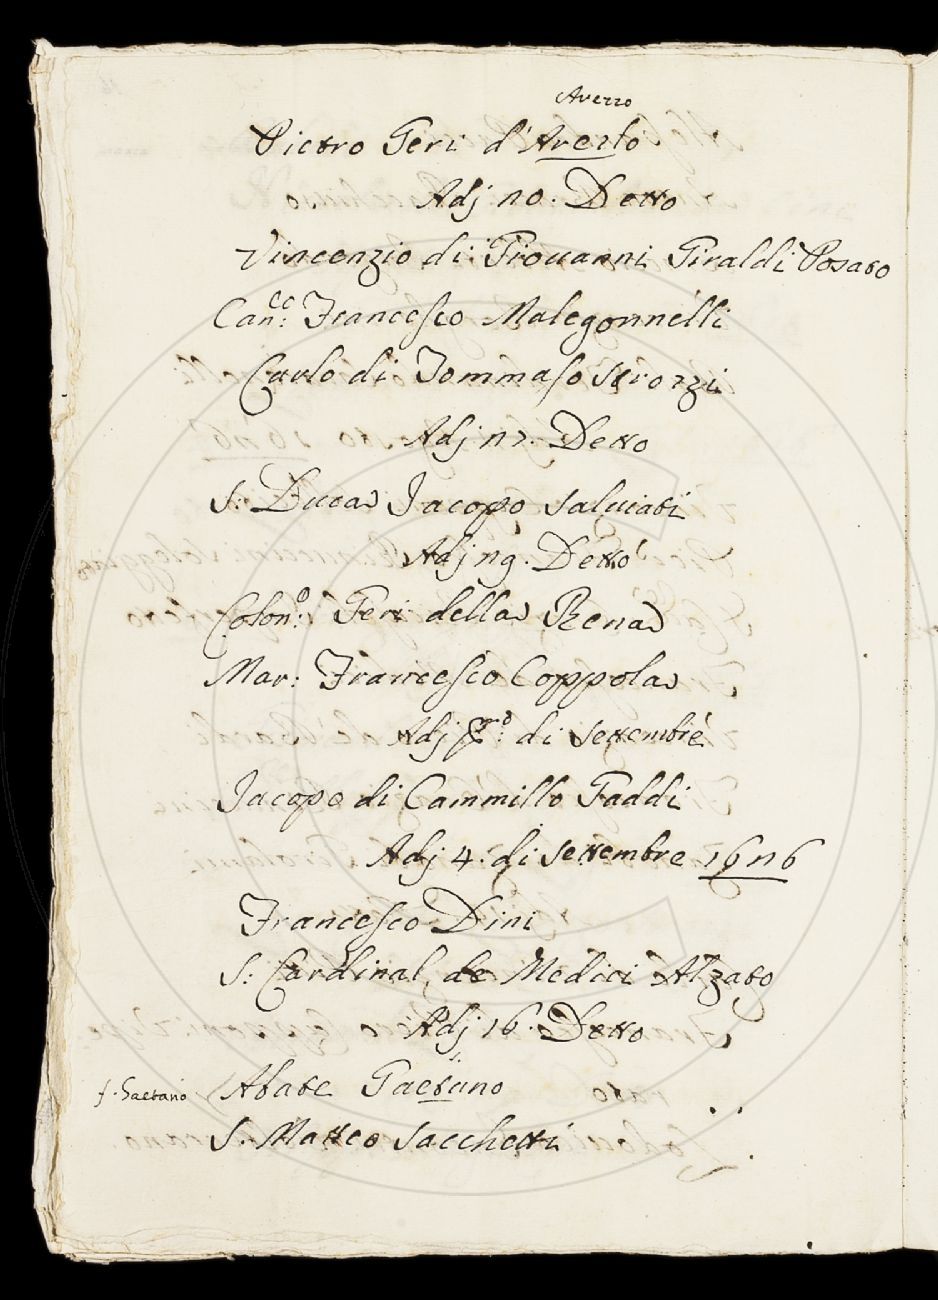 Arezzo
Pietro Geri d'Arezlo
Adj 20. Detto
Vincenzio di Giouanni Giraldi Posato
Can:co Francesco Malegonnelli
Carlo di Tommaso Strozzi
Adj 27. Detto
S: Duca Jacopo Saluiati
Adj 29. Detto
Colon:o Geri della Rena
Mar: Francesco Coppola
Adj pr:o di Settembre
Jacopo di Cammillo Gaddi
Adj 4. di Settembre 1626
Francesco Dini
S: Cardinal de Medici Alzato
Adj 16. Detto
f. Gaetano Abate Gaetano
S. Matteo Sacchetti